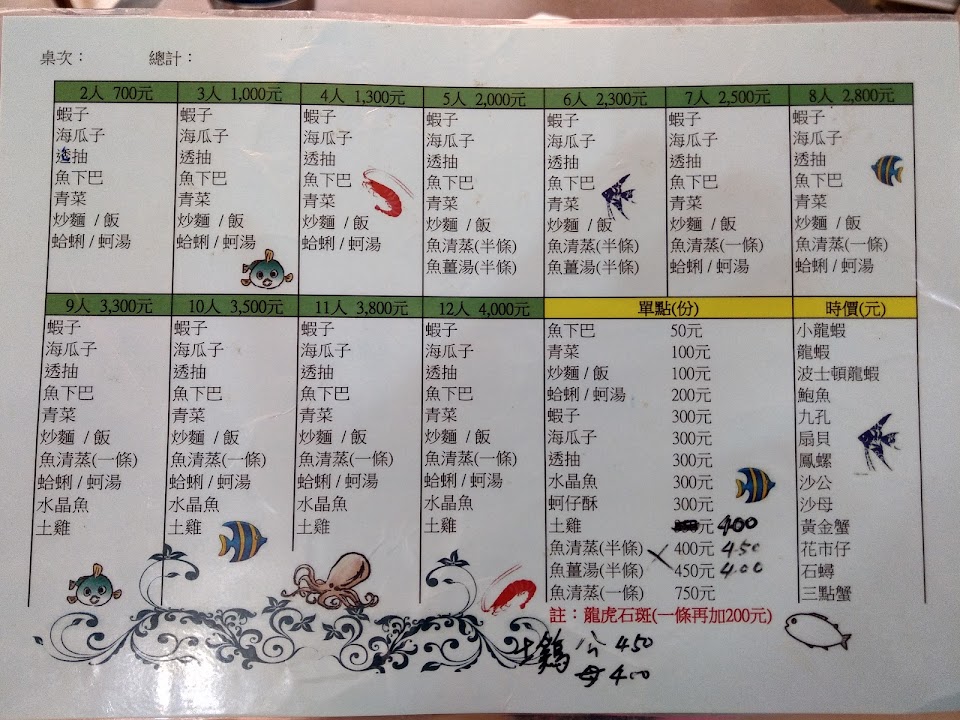 桌次： 總計：
2人 700元
蝦子
海瓜子
透抽
魚下巴
青菜
炒麵 / 飯
蛤蜊 / 蚵湯
3人 1,000元
蝦子
海瓜子
透抽
魚下巴
青菜
炒麵 / 飯
蛤蜊 / 蚵湯
4人 1,300元
蝦子
海瓜子
透抽
魚下巴
青菜
炒麵 / 飯
蛤蜊 / 蚵湯
5人 2,000元
蝦子
海瓜子
透抽
魚下巴
青菜
炒麵 / 飯
魚清蒸(半條)
魚薑湯(半條)
6人 2,300元
蝦子
海瓜子
透抽
魚下巴
青菜
炒麵 / 飯
魚清蒸(半條)
魚薑湯(半條)
7人 2,500元
蝦子
海瓜子
透抽
魚下巴
青菜
炒麵 / 飯
魚清蒸(一條)
蛤蜊 / 蚵湯
8人 2,800元
蝦子
海瓜子
透抽
魚下巴
青菜
炒麵 / 飯
魚清蒸(一條)
蛤蜊 / 蚵湯
9人 3,300元
蝦子
海瓜子
透抽
魚下巴
青菜
炒麵 / 飯
魚清蒸(一條)
蛤蜊 / 蚵湯
水晶魚
土雞
10人 3,500元
蝦子
海瓜子
透抽
魚下巴
青菜
炒麵 / 飯
魚清蒸(一條)
蛤蜊 / 蚵湯
水晶魚
土雞
11人 3,800元
蝦子
海瓜子
透抽
魚下巴
青菜
炒麵 / 飯
魚清蒸(一條)
蛤蜊 / 蚵湯
水晶魚
土雞
12人 4,000元
蝦子
海瓜子
透抽
魚下巴
青菜
炒麵 / 飯
魚清蒸(一條)
蛤蜊 / 蚵湯
水晶魚
土雞
單點(份)
魚下巴 50元
青菜 100元
炒麵 / 飯 100元
蛤蜊 / 蚵湯 200元
蝦子 300元
海瓜子 300元
透抽 300元
水晶魚 300元
蚵仔酥 300元
土雞 元 400
魚清蒸(半條) 400元 450
魚薑湯(半條) 450元 400
魚清蒸(一條) 750元
註：龍虎石斑(一條再加200元)
時價(元)
小龍蝦
龍蝦
波士頓龍蝦
鮑魚
九孔
扇貝
鳳螺
沙公
沙母
黃金蟹
花市仔
石蟳
三點蟹
公 450
母 400